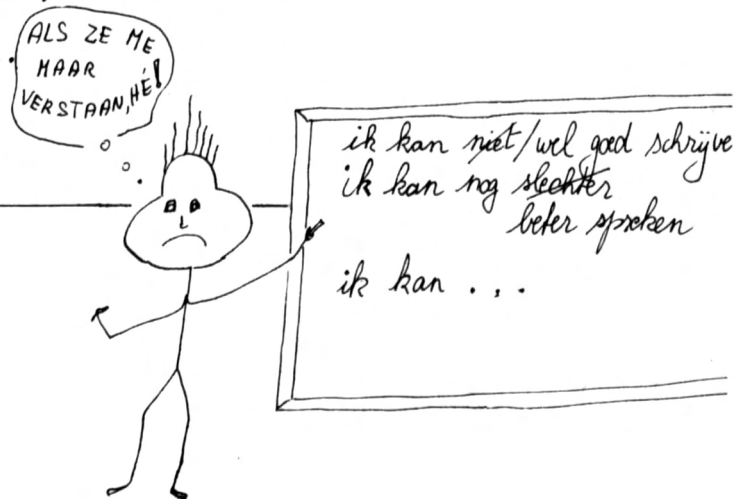 ALS ZE ME
MAAR
VERSTAAN, HÉ!
ik kan niet/wel goed schrijve
ik kan nog slechter
beter spreken
ik kan . . .